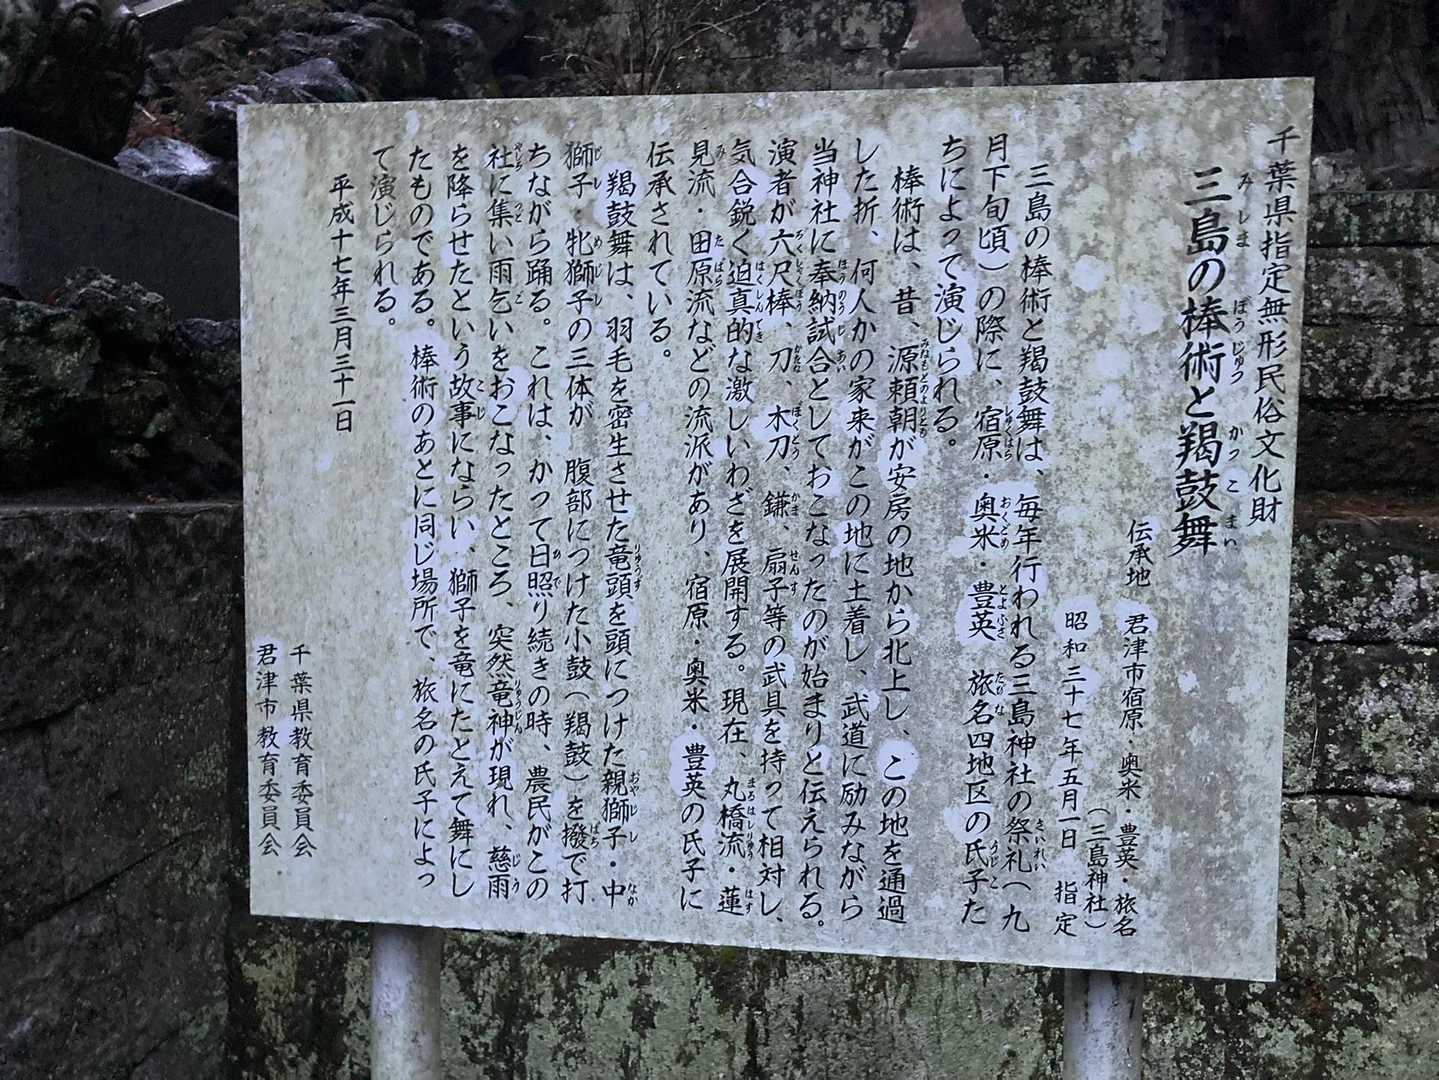 千葉県指定無形民俗文化財
三島の棒術と羯鼓舞
伝承地 君津市宿原・奥米・豊英・旅名
(三島神社)
昭和三十七年五月一日 指定
三島の棒術と羯鼓舞は、毎年行われる三島神社の祭礼(九
月下旬頃)の際に、宿原・奥米・豊英 旅名四地区の氏子た
ちによって演じられる。
棒術は、昔、源頼朝が安房の地から北上し、この地を通過
した折、何人かの家来がこの地に土着し、武道に励みながら
当神社に奉納試合としておこなったのが始まりと伝えられる。
演者が六尺棒、刀、木刀、鎌、扇子等の武具を持って相対し、
気合鋭く迫真的な激しいわざを展開する。現在、丸橋流・蓮
見流・田原流などの流派があり、宿原・奥米・豊英の氏子に
伝承されている。
羯鼓舞は、羽毛を密生させた竜頭を頭につけた親獅子・中
獅子・牝獅子の三体が 腹部につけた小鼓(羯鼓)を撥で打
ちながら踊る。これは、かって日照り続きの時、農民がこの
社に集い雨乞いをおこなったところ、突然竜神が現れ、慈雨
を降らせたという故事にならい、獅子を竜にたとえて舞にし
たものである。棒術のあとに同じ場所で、旅名の氏子によっ
て演じられる。
平成十七年三月三十一日
千葉県教育委員会
君津市教育委員会